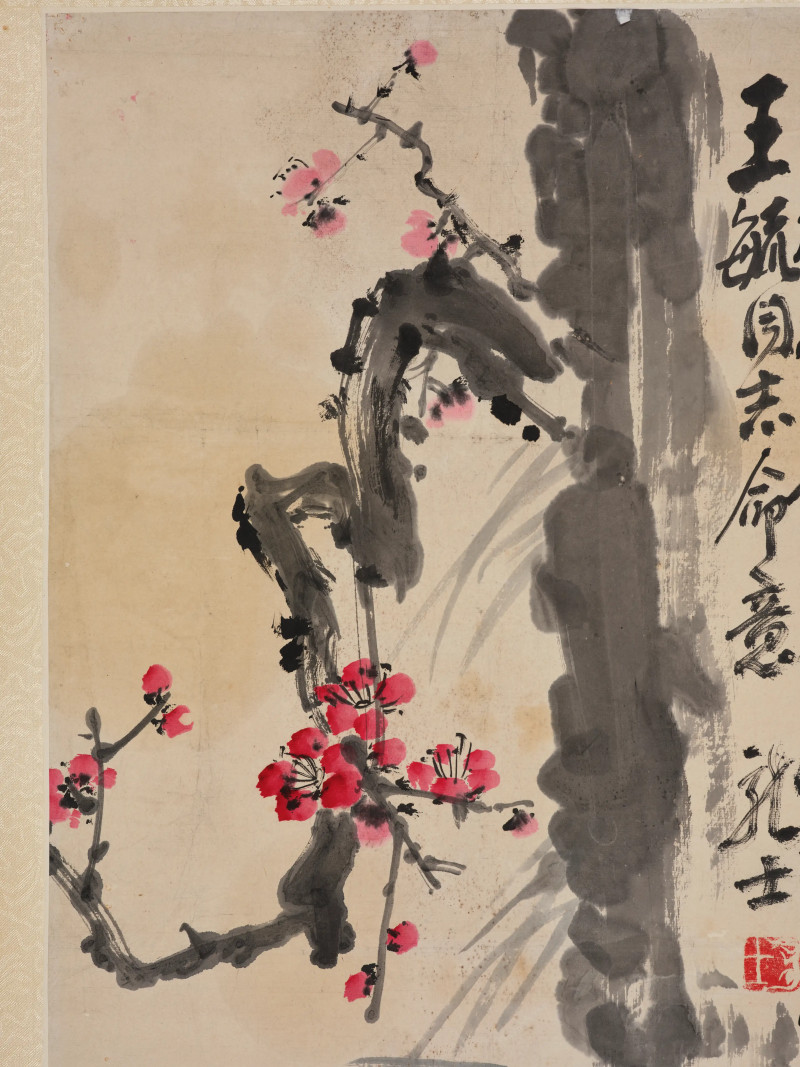 王毓同志命意
龍士